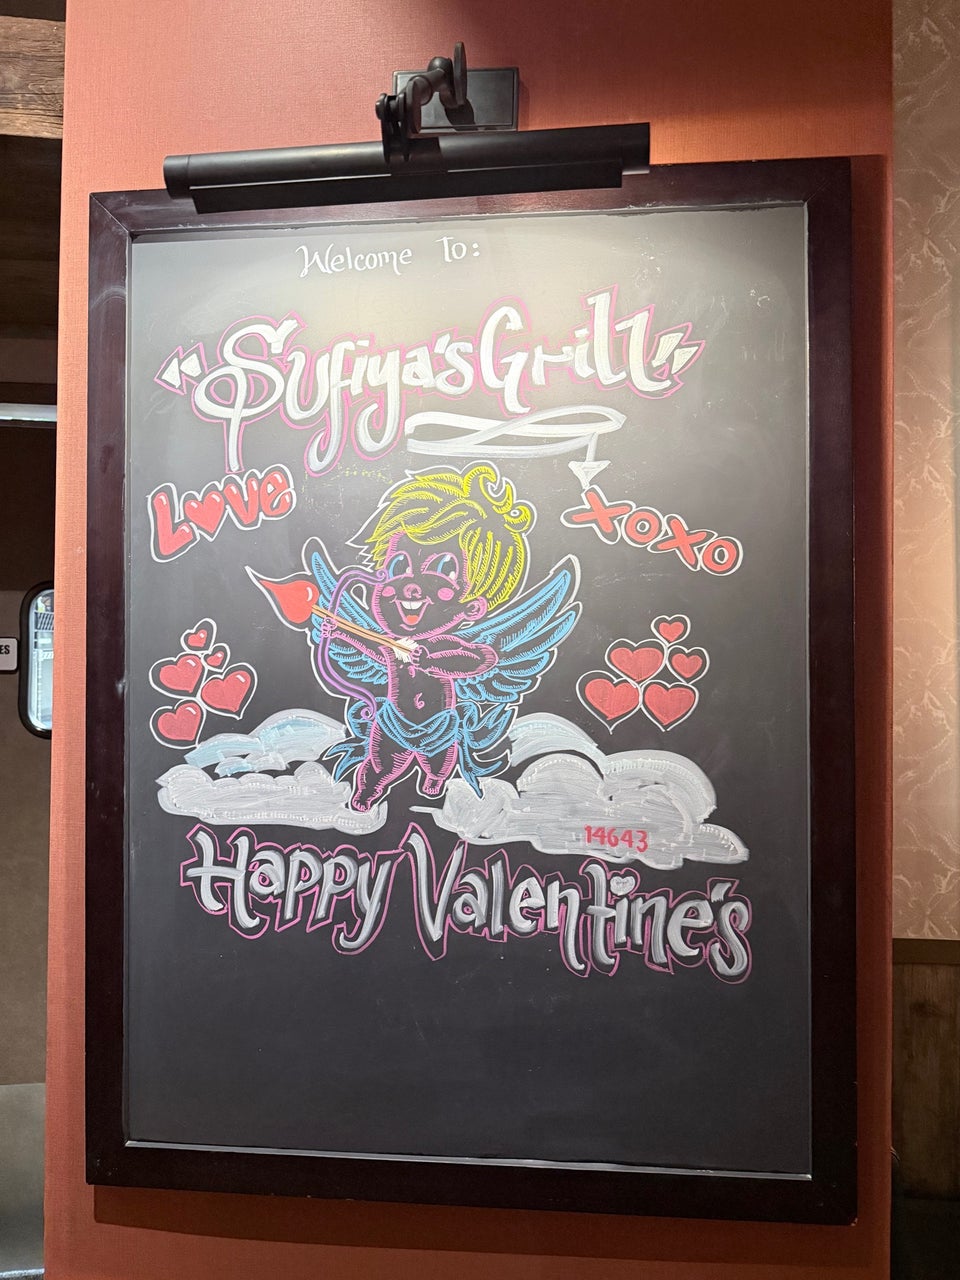 Welcome To:
"Sufiya's Grill"
Love
XOXO
14643
Happy Valentine's
ES